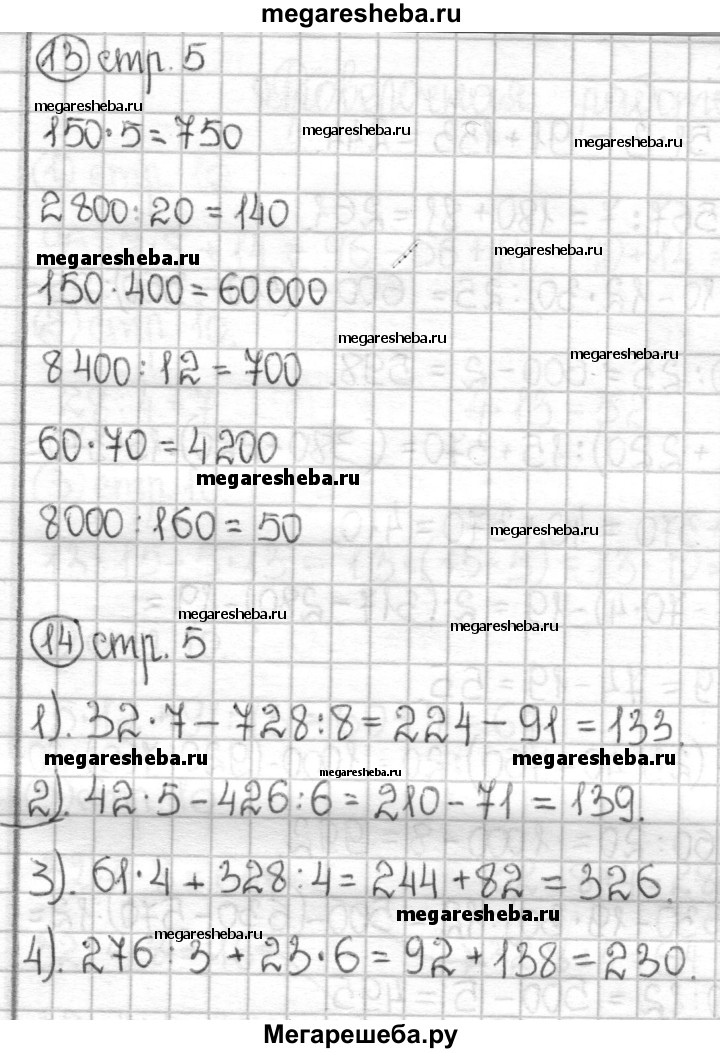 megaresheba.ru
13 стр. 5
megaresheba.ru
150·5=750
megaresheba.ru
megaresheba.ru
2800:20=140
megaresheba.ru
megaresheba.ru
150·400=60000
megaresheba.ru
megaresheba.ru
8400:12=700
60·70=4200
megaresheba.ru
8000:160=50
megaresheba.ru
megaresheba.ru
megaresheba.ru
14 стр. 5
1). 32·7-728:8=224-91=133.
megaresheba.ru
megaresheba.ru
megaresheba.ru
2). 42·5-426:6=210-71=139.
3). 61·4+328:4=244+82=326.
megaresheba.ru
megaresheba.ru
4). 276:3+23·6=92+138=230.
Мегарешеба.ру